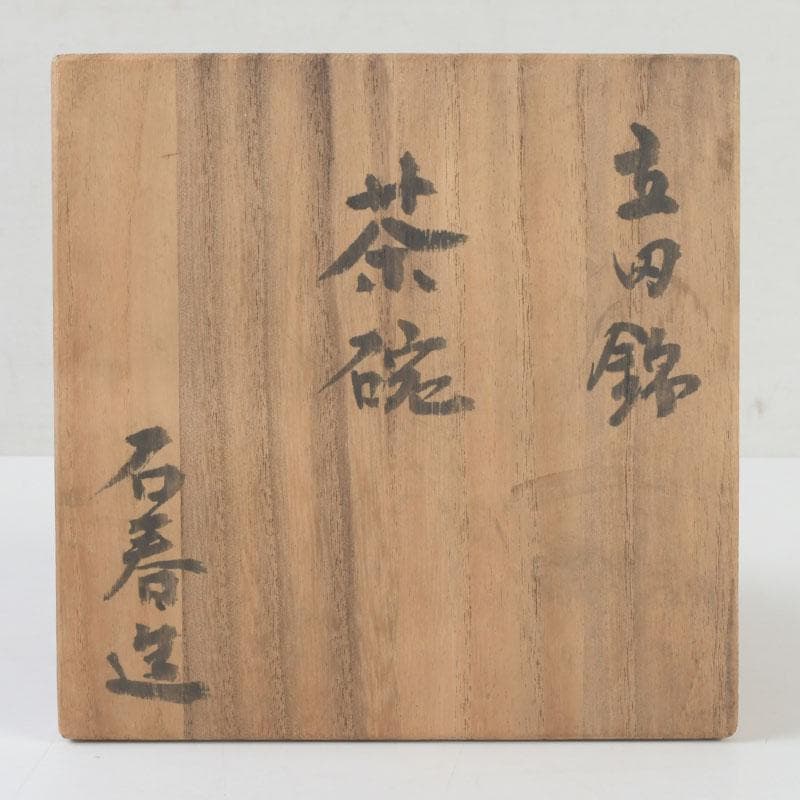 立田錦
茶碗
石春造